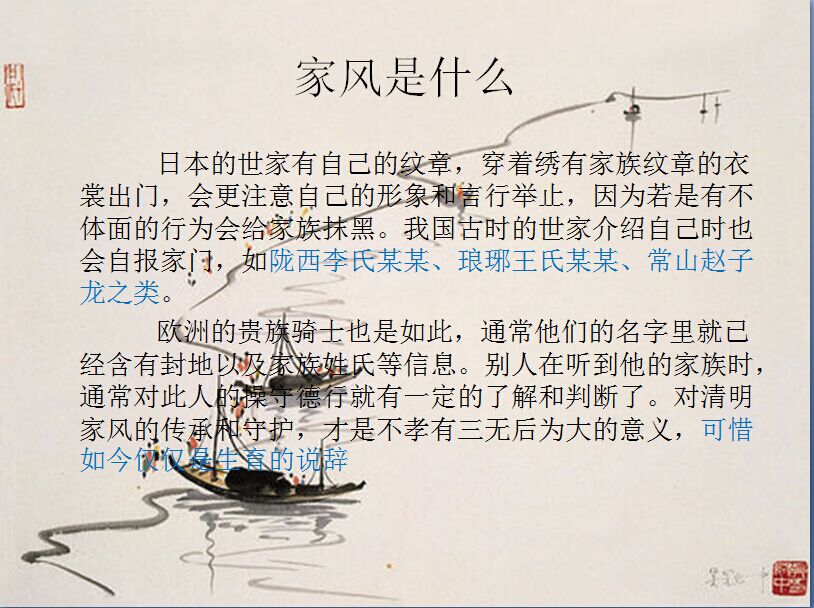 家风是什么
日本的世家有自己的纹章，穿着绣有家族纹章的衣
裳出门，会更注意自己的形象和言行举止，因为若是有不
体面的行为会给家族抹黑。我国古时的世家介绍自己时也
会自报家门，如陇西李氏某某、琅琊王氏某某、常山赵子
龙之类。
欧洲的贵族骑士也是如此，通常他们的名字里就已
经含有封地以及家族姓氏等信息。别人在听到他的家族时，
通常对此人的操守德行就有一定的了解和判断了。对清明
家风的传承和守护，才是不孝有三无后为大的意义，可惜
如今仅仅是生育的说辞